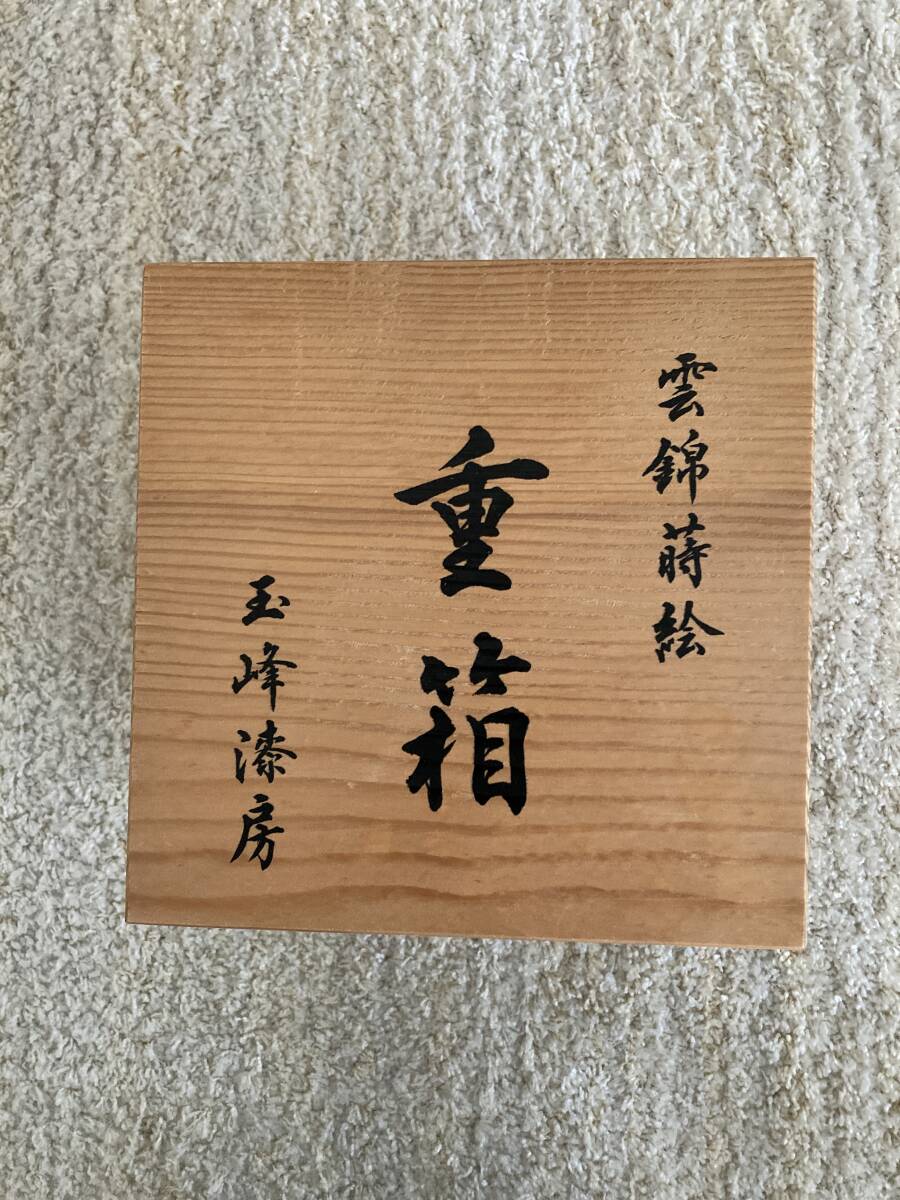 雲錦蒔絵
重箱
玉峰漆房